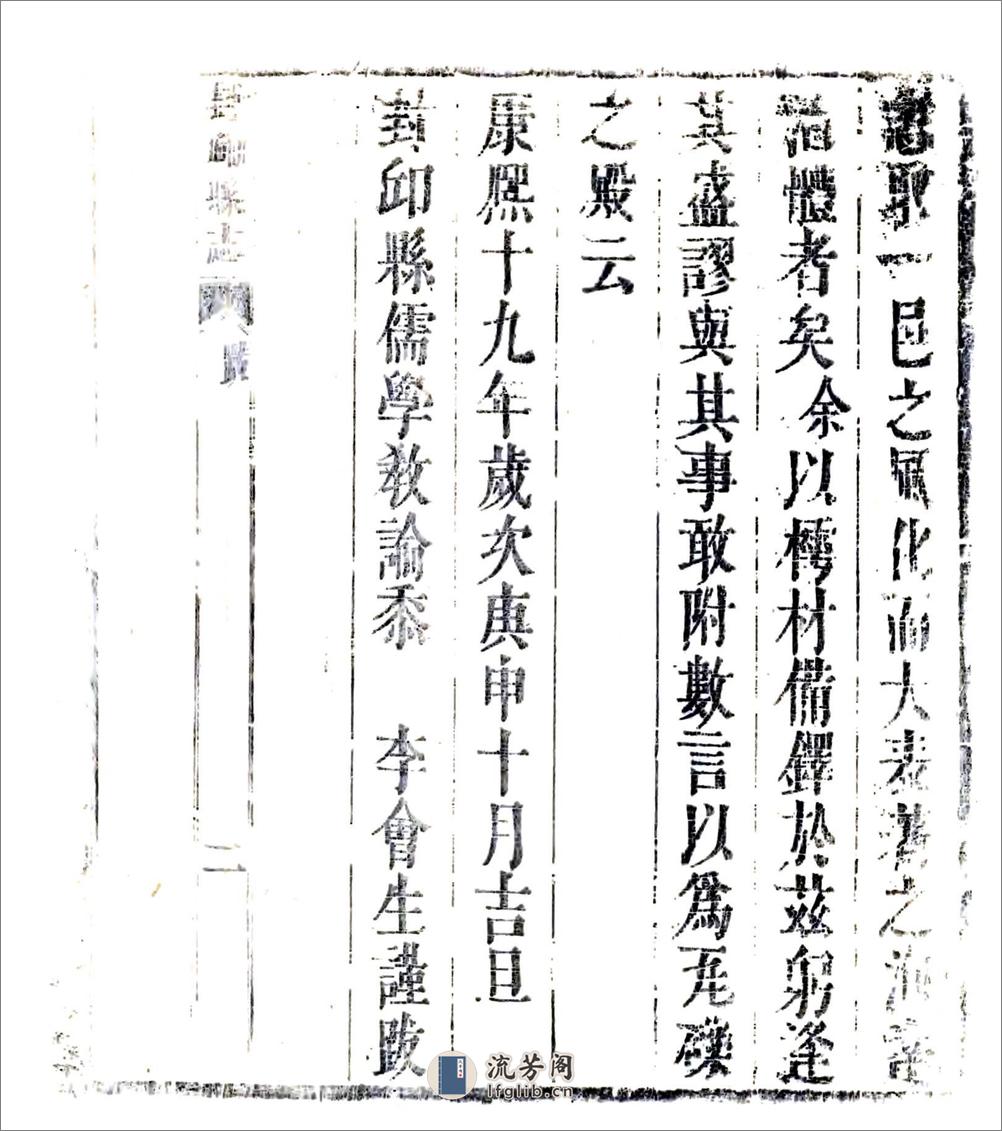 聖一邑之風化而大表著之海
治體者矣余以樗材備鐸於茲躬逢
其盛謬與其事敢附數言以爲瓦礫
之殿云
康熙十九年歲次庚申十月吉旦
封邱縣儒學教諭黍 李會生謹跋
封邱縣志 跋 二
流芳阁
lfglib.cn